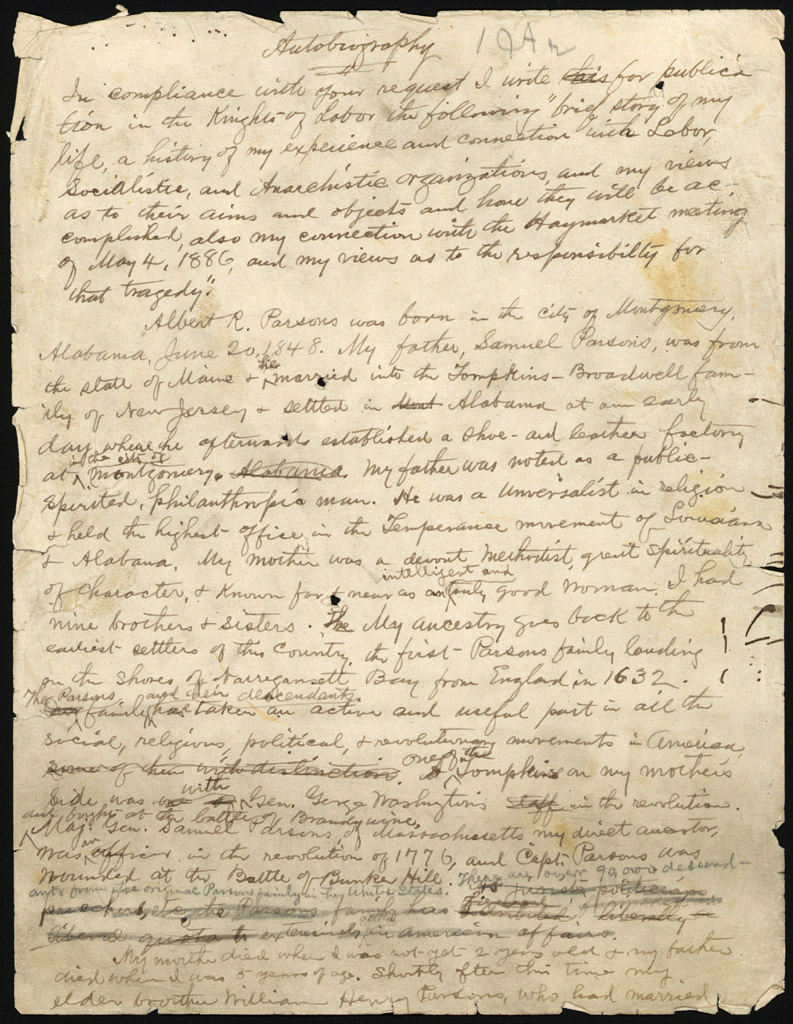 Autobiography
In compliance with your request I write this for publica
tion in the Knights of Labor the following "brief story of my
life, a history of my experience and connection with Labor,
Socialistic, and Anarchistic organizations, and my views
as to their aims and objects and how they will be ac-
complished, also my connection with the Haymarket meeting
of May 4, 1886, and my views as to the responsibilty for
that tragedy".
Albert R. Parsons was born in the city of Montgomery,
Alabama, June 20, 1848. My father, Samuel Parsons, was from
the state of Maine & he married into the Tompkins-Broadwell fam-
ily of New Jersey & settled in Alabama at an early
day where he afterwards established a shoe and leather factory
in the city of
at Montgomery, Alabama. My father was noted as a public-
spirited, philanthropic man. He was a Universalist in religion
& held the highest office in the Temperance movement of Louisiana
& Alabama. My mother was a devout Methodist, great spirituality
intelligent and
of character, & known far & near as an truly good woman. I had
nine brothers & sisters. The My ancestry goes back to the
earliest settlers of this country, the first Parsons family landing
on the shores of Narragansett Bay from England in 1632.
The Parsons and their descendants
family has taken an active and useful part in all the
social, religious, political, & revolutionary movements in America,
some of them with distinction. one of the Tompkins on my mother's
with
side was Gen. George Washington's staff in the revolution.
and fought at the battle of Brandywine,
Maj. Gen. Samuel Parsons, of Massachusetts my direct ancestor,
was an officer in the revolution of 1776, and Capt. Parsons was
wounded at the Battle of Bunker Hill. There are over 90,000 descend-
ants from the original Parsons family in the United States.
preachers, etc., the Parsons family has
liberal quota to in American affairs.
My mother died when I was not yet 2 years old & my father
died when I was 5 years of age. Shortly after this time my
elder brother William Henry Parsons, who had married